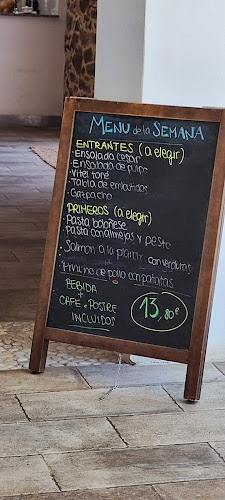 MENU de la SEMANA
ENTRANTES (a elegir)
- Ensalada cesar
- Ensalada de pulpo
- Vitel toné
- Tabla de embutidos
- Gazpacho
PRIMEROS (a elegir)
- Pasta boloñese
- pasta con almejas y pesto
- Salmon a la planch con verduras
- Pechuga de pollo con patatas
BEBIDA
+
CAFE o POSTRE
INCLUIDOS
13,80€